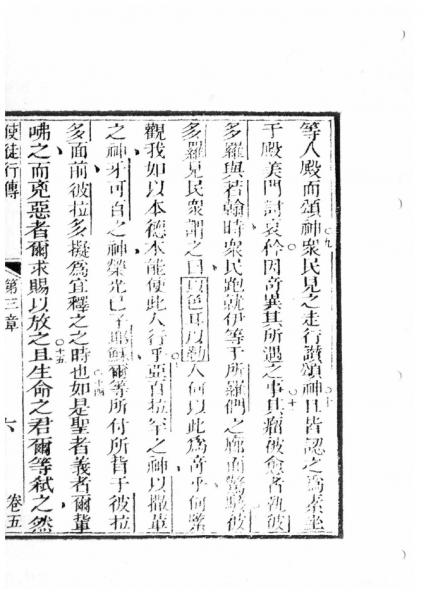 等入殿而頌神衆民見之走行讚頌神且皆認之爲素坐
于殿美門討哀矜因奇異其所遇之事其瘤被愈者執彼
多羅與若翰時衆民跑就伊等于所羅們之廊而驚駭彼
多羅見民衆謂之曰以色耳以勒人何以此爲奇乎何緊
觀我如以本德本能使此人行乎亞百拉罕之神以撒革
之神牙可百之神榮光己子耶穌爾等所付所背于彼拉
多面前彼拉多擬爲宜釋之之時也如是聖者義者爾輩
咈之而兇惡者爾求賜以放之且生命之君爾等弒之然
使徒行傳 第三章 六 卷五